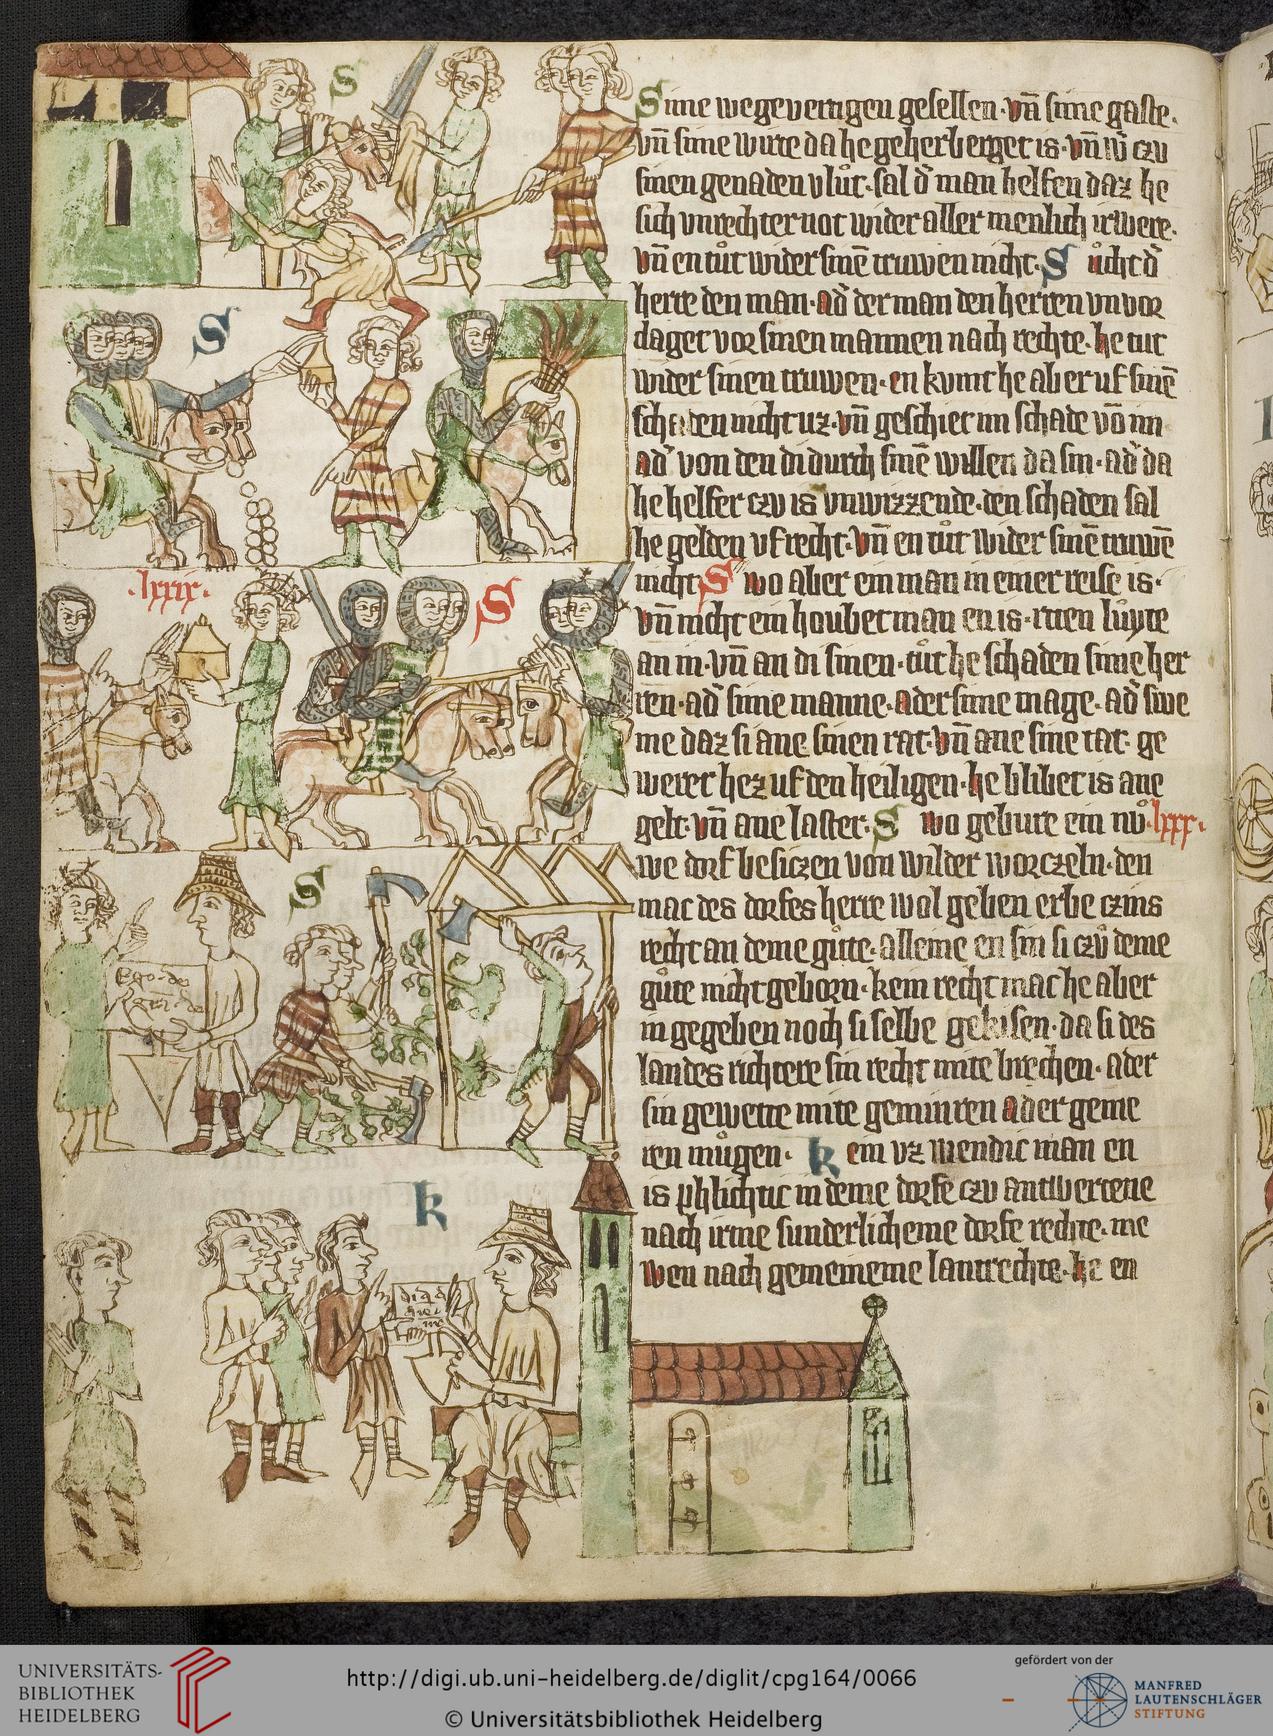 S
Sime wegevertigen gesellen · vn̄ sime gaste ·
vn̄ sime wirte da he geherberget is · vn̄ w̄ czu
sinen genaden vlůt · sal d̓ man helfen daz he
sich vnrechter not wider aller menlich irwere ·
vn̄ en tůt wider sinē truwen nicht · S ůcht d̓
herre den man · ad̓ der man den herren vnvor
daget vor sinen mannen nach rechte · he tut
wider sinen truwen · en kumt he aber uf sinē
schaden nicht uz · vn̄ geschiet im schade vō im
ad̓ von den di durch sinē willen da sin · ad̓ da
he helfer czu is vnwizzende · den schaden sal
he gelden uf recht · vn̄ en tůt wider sinē truwē
nicht S wo aber ein man in einer reise is ·
vn̄ nicht ein houbetman en is · rten lůyte
an in · vn̄ an di sinen · tůt he schaden sime her
ren · ad̓ sime manne · ader sime mage · ad̓ swe
me daz si ane sinen rat · vn̄ ane sine tat · ge
weret hez uf den heiligen · he blibet is ane
gelt · vn̄ ane laster · S wo gebure ein nů · lxxx ·
we dorf besiczen von wilder worczeln · den
mac des dorfes herre wol geben erbe czins
recht an deme gůte · alleine en sin si czů deme
gůte nicht geborn · kein recht mac he aber
in gegeben noch si selbe gekisen · da si des
landes richtere sin recht mite brechen · ader
sin gewette mite geminren ader geme
ren můgen · k ein uz wendic man en
is phlichtic in deme dorfe czu antwertene
nach irme sunderlicheme dorfe rechte · me
wen nach gemeineme lantrechte · he en
S
· lxxix ·
S
S
Ego · de
k
UNIVERSITÄTS-
BIBLIOTHEK
HEIDELBERG
http://digi.ub.uni-heidelberg.de/diglit/cpg164/0066
© Universitätsbibliothek Heidelberg
gefördert von der
MANFRED
LAUTENSCHLÄGER
STIFTUNG